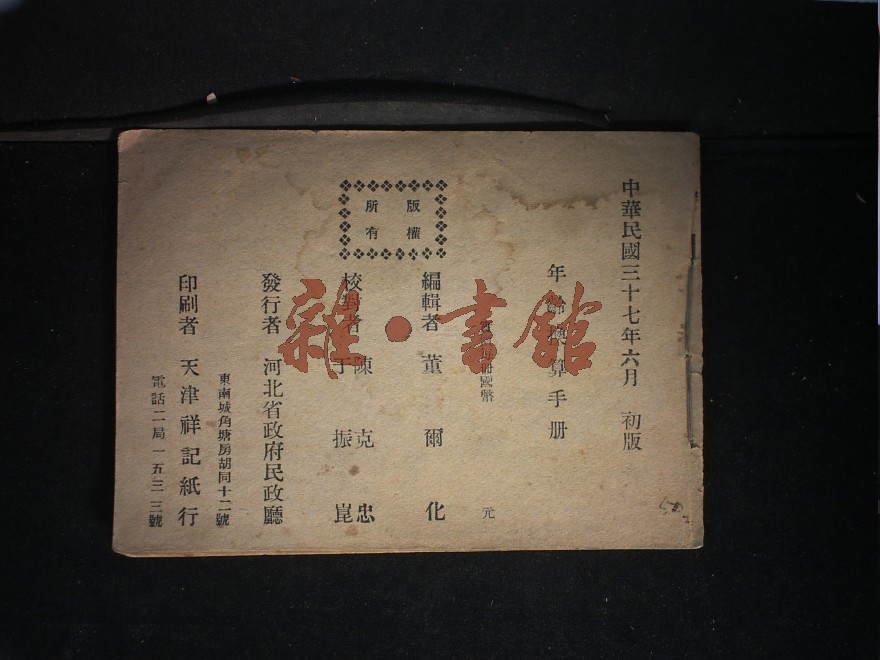 中華民國三十七年六月　初版
年齡換算手册
實價每册國幣　元
版權
所有
編輯者　董爾化
校對者　陳克忠
于振崑
發行者　河北省政府民政廳
東南城角塘房胡同十二號
印刷者　天津祥記紙行
電話二局一五三三號
雜·書館